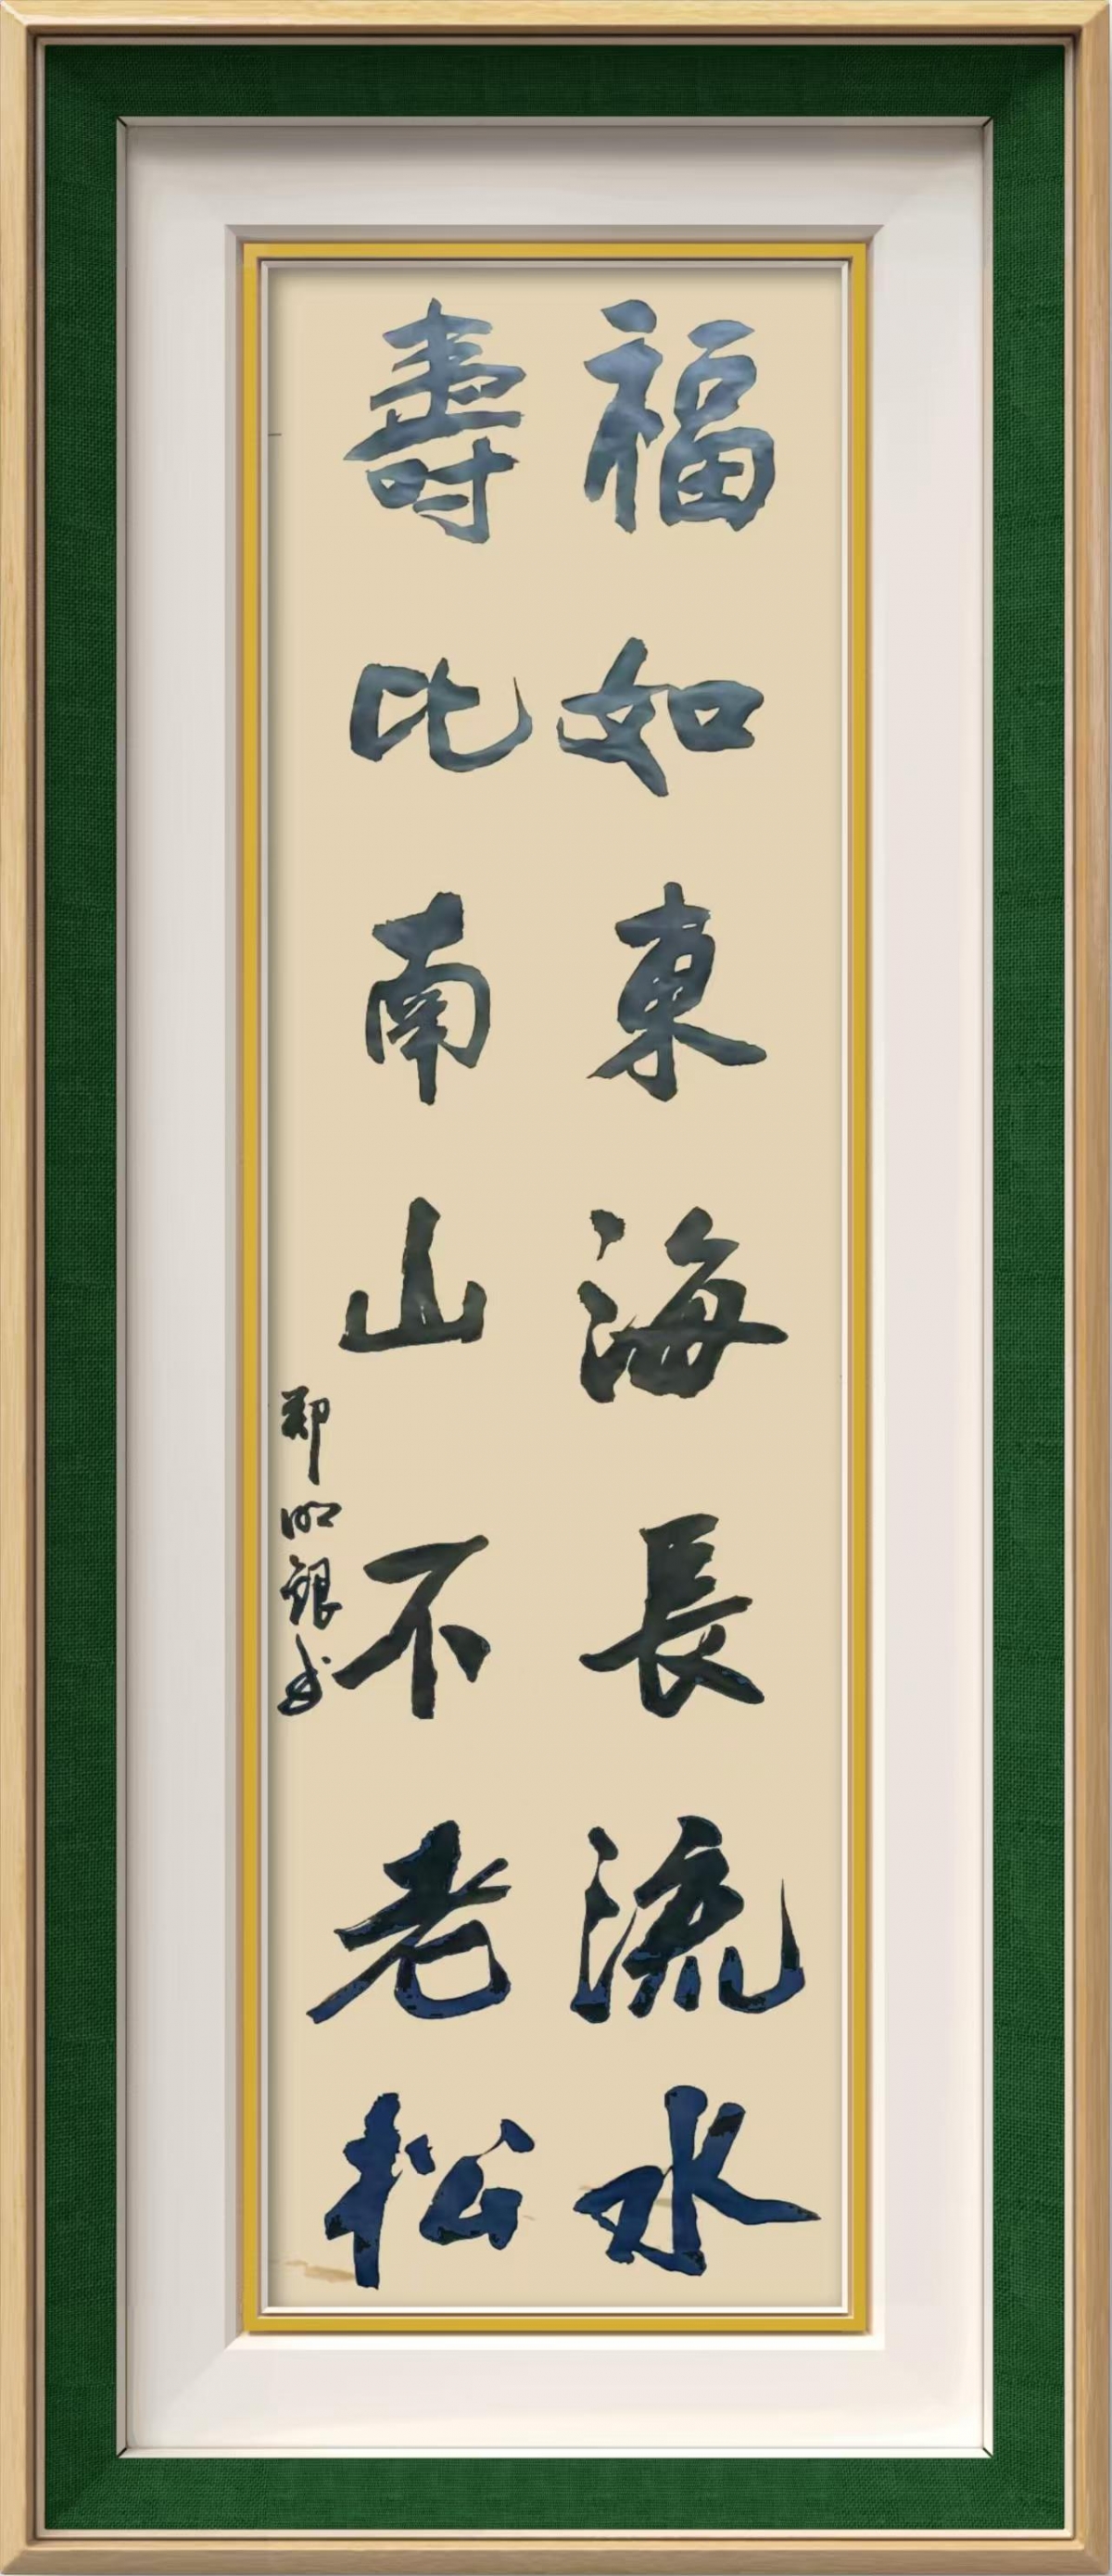 福如東海長流水
壽比南山不老松
郑明銀书